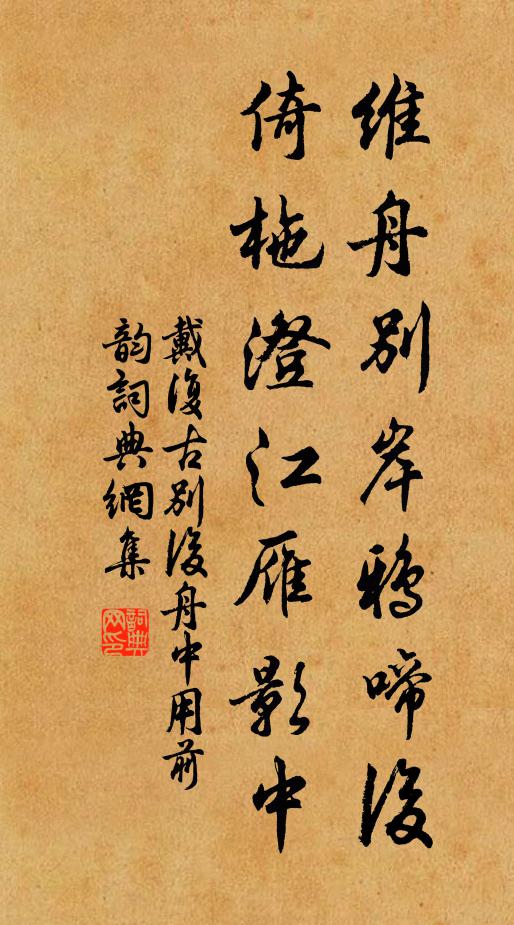 維舟別岸鴉啼後
倚柂澄江雁影中
戴復古別後舟中用前
韵詞典網集
詞典
网印